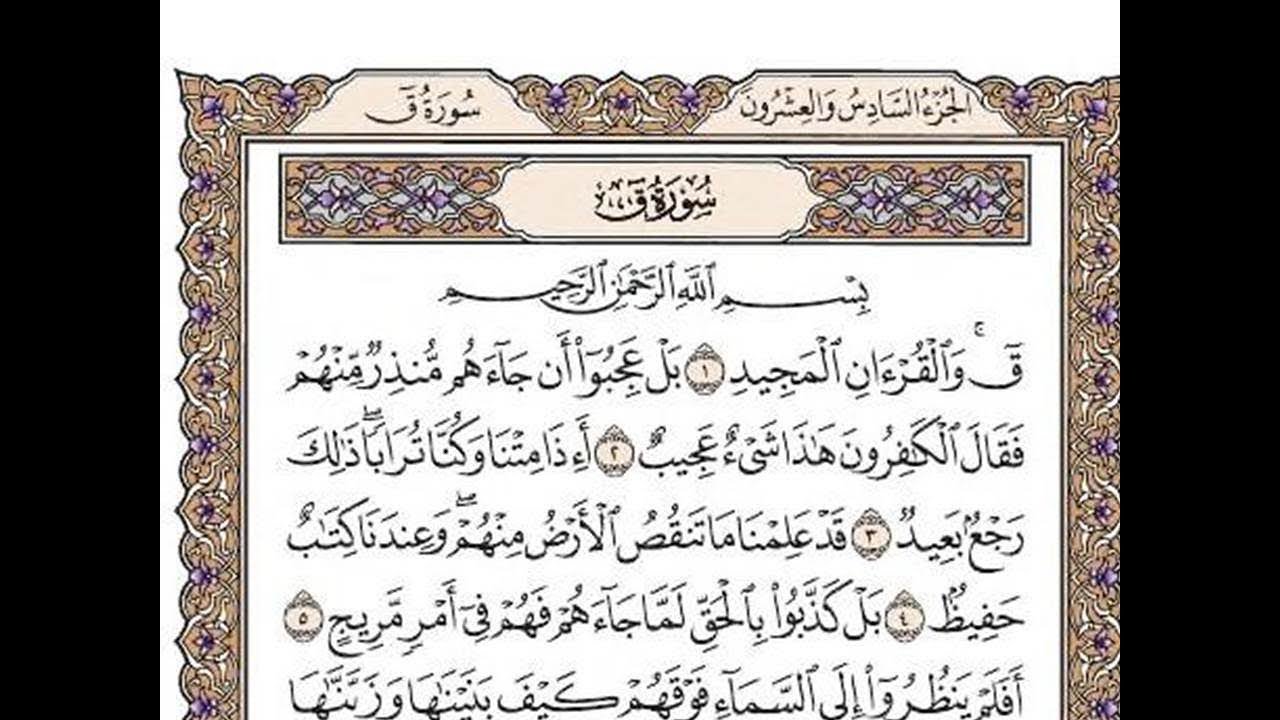 الجُزْءُ السَّادِسُ وَالعِشْرُونَ
سُورَةُ قٓ
سُورَةُ قٓ
بِسۡمِ ٱللَّهِ ٱلرَّحۡمَٰنِ ٱلرَّحِيمِ
قٓۚ وَٱلۡقُرۡءَانِ ٱلۡمَجِيدِ ١ بَلۡ عَجِبُوٓاْ أَن جَآءَهُم مُّنذِرٞ مِّنۡهُمۡ
فَقَالَ ٱلۡكَٰفِرُونَ هَٰذَا شَيۡءٌ عَجِيبٌ ٢ أَءِذَا مِتۡنَا وَكُنَّا تُرَابٗاۖ ذَٰلِكَ
رَجۡعُۢ بَعِيدٞ ٣ قَدۡ عَلِمۡنَا مَا تَنقُصُ ٱلۡأَرۡضُ مِنۡهُمۡۖ وَعِندَنَا كِتَٰبٌ
حَفِيظُۢ ٤ بَلۡ كَذَّبُواْ بِٱلۡحَقِّ لَمَّا جَآءَهُمۡ فَهُمۡ فِيٓ أَمۡرٖ مَّرِيجٍ ٥
أَفَلَمۡ يَنظُرُوٓاْ إِلَى ٱلسَّمَآءِ فَوۡقَهُمۡ كَيۡفَ بَنَيۡنَٰهَا وَزَيَّنَّٰهَا